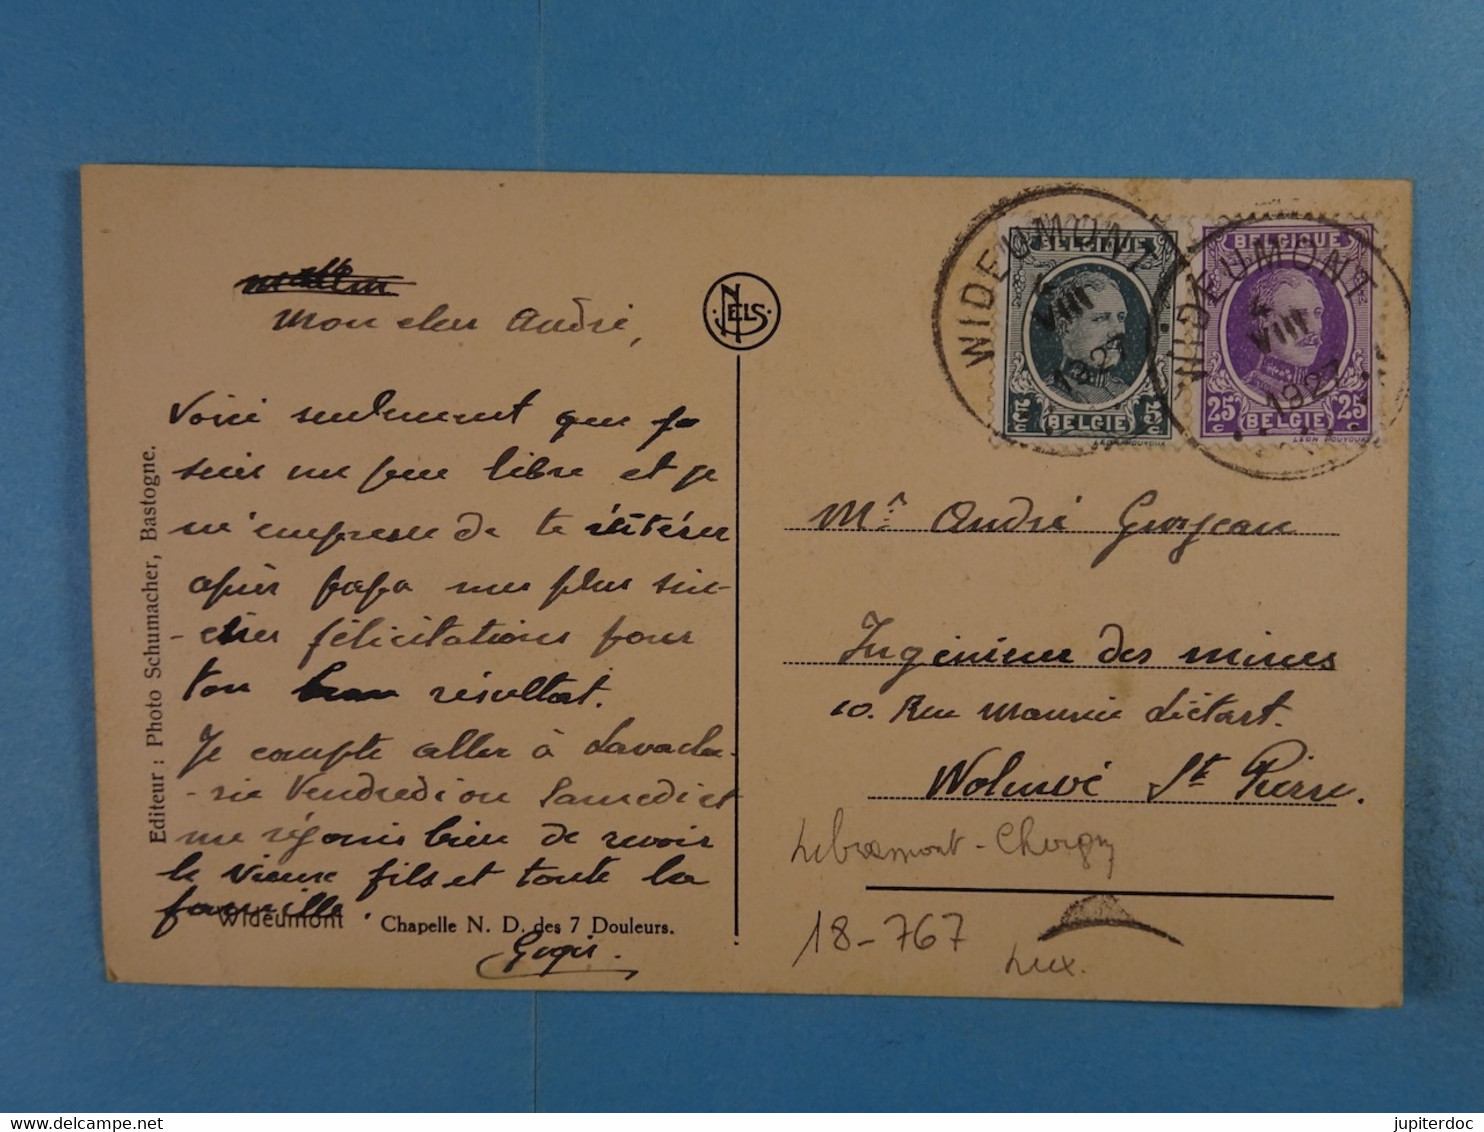 Mon cher André,
Voici seulement que je
suis un peu libre et je
m'empresse de te réitérer
après papa mes plus sin-
-cères félicitations pour
ton résultat.
Je compte aller à Lavache-
-rie Vendredi ou Samedi et
me réjouis bien de revoir
le vieux fils et toute la
famille.
Wideumont Chapelle N. D. des 7 Douleurs.
Editeur : Photo Schumacher, Bastogne.
NELS
WIDEUMONT
4
VIII
1927
BELGIQUE
5c 5c
BELGIE
WIDEUMONT
4
VIII
1927
BELGIQUE
25c 25c
BELGIE
Mr. André Grosjean
Ingénieur des mines
10. Rue Maurice Liétart.
Woluwé St Pierre.
Libramont-Chevigny
18-767
Lux.
jupiterdoc